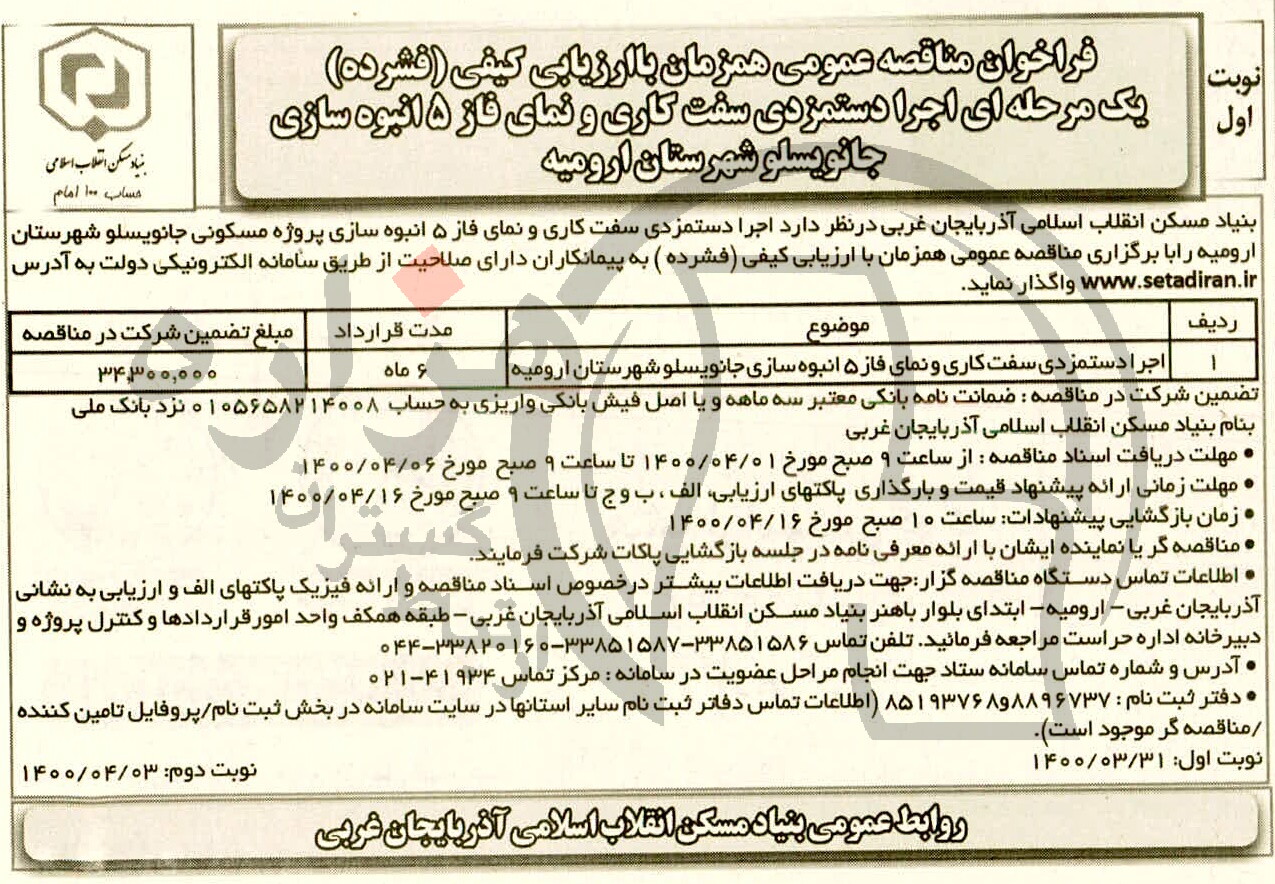 نوبت اول
فراخوان مناقصه عمومی همزمان باارزیابی کیفی (فشرده)
یک مرحله ای اجرا دستمزدی سفت کاری و نمای فاز ۵ انبوه سازی
جانویسلو شهرستان ارومیه
بنیاد مسکن انقلاب اسلامی
حساب ۱۰۰ امام
بنیاد مسکن انقلاب اسلامی آذربایجان غربی درنظر دارد اجرا دستمزدی سفت کاری و نمای فاز ۵ انبوه سازی پروژه مسکونی جانویسلو شهرستان
ارومیه رابا برگزاری مناقصه عمومی همزمان با ارزیابی کیفی (فشرده ) به پیمانکاران دارای صلاحیت از طریق سامانه الکترونیکی دولت به آدرس
www.setadiran.ir واگذار نماید.
ردیف موضوع مدت قرارداد مبلغ تضمین شرکت در مناقصه
۱ اجرا دستمزدی سفت کاری و نمای فاز ۵ انبوه سازی جانویسلو شهرستان ارومیه ۶ ماه ۳۴,۳۰۰,۰۰۰
تضمین شرکت در مناقصه : ضمانت نامه بانکی معتبر سه ماهه و یا اصل فیش بانکی واریزی به حساب ۰۱۰۵۶۵۸۲۱۴۰۰۸ نزد بانک ملی
بنام بنیاد مسکن انقلاب اسلامی آذربایجان غربی
• مهلت دریافت اسناد مناقصه : از ساعت ۹ صبح مورخ ۱۴۰۰/۰۴/۰۱ تا ساعت ۹ صبح مورخ ۱۴۰۰/۰۴/۰۶
• مهلت زمانی ارائه پیشنهاد قیمت و بارگذاری پاکتهای ارزیابی، الف ، ب و ج تا ساعت ۹ صبح مورخ ۱۴۰۰/۰۴/۱۶
• زمان بازگشایی پیشنهادات: ساعت ۱۰ صبح مورخ ۱۴۰۰/۰۴/۱۶
• مناقصه گر یا نماینده ایشان با ارائه معرفی نامه در جلسه بازگشایی پاکات شرکت فرمایند.
• اطلاعات تماس دستگاه مناقصه گزار:جهت دریافت اطلاعات بیشتر درخصوص اسناد مناقصه و ارائه فیزیک پاکتهای الف و ارزیابی به نشانی
آذربایجان غربی – ارومیه – ابتدای بلوار باهنر بنیاد مسکن انقلاب اسلامی آذربایجان غربی – طبقه همکف واحد امورقراردادها و کنترل پروژه و
دبیرخانه اداره حراست مراجعه فرمائید. تلفن تماس ۳۳۸۵۱۵۸۶-۳۳۸۵۱۵۸۷-۳۳۸۲۰۱۶۰-۰۴۴
• آدرس و شماره تماس سامانه ستاد جهت انجام مراحل عضویت در سامانه : مرکز تماس ۴۱۹۳۴-۰۲۱
• دفتر ثبت نام : ۸۸۹۶۷۳۷و۸۵۱۹۳۷۶۸ (اطلاعات تماس دفاتر ثبت نام سایر استانها در سایت سامانه در بخش ثبت نام/پروفایل تامین کننده
/مناقصه گر موجود است).
نوبت اول: ۱۴۰۰/۰۳/۳۱ نوبت دوم: ۱۴۰۰/۰۴/۰۳
روابط عمومی بنیاد مسکن انقلاب اسلامی آذربایجان غربی
هزاره
گستران